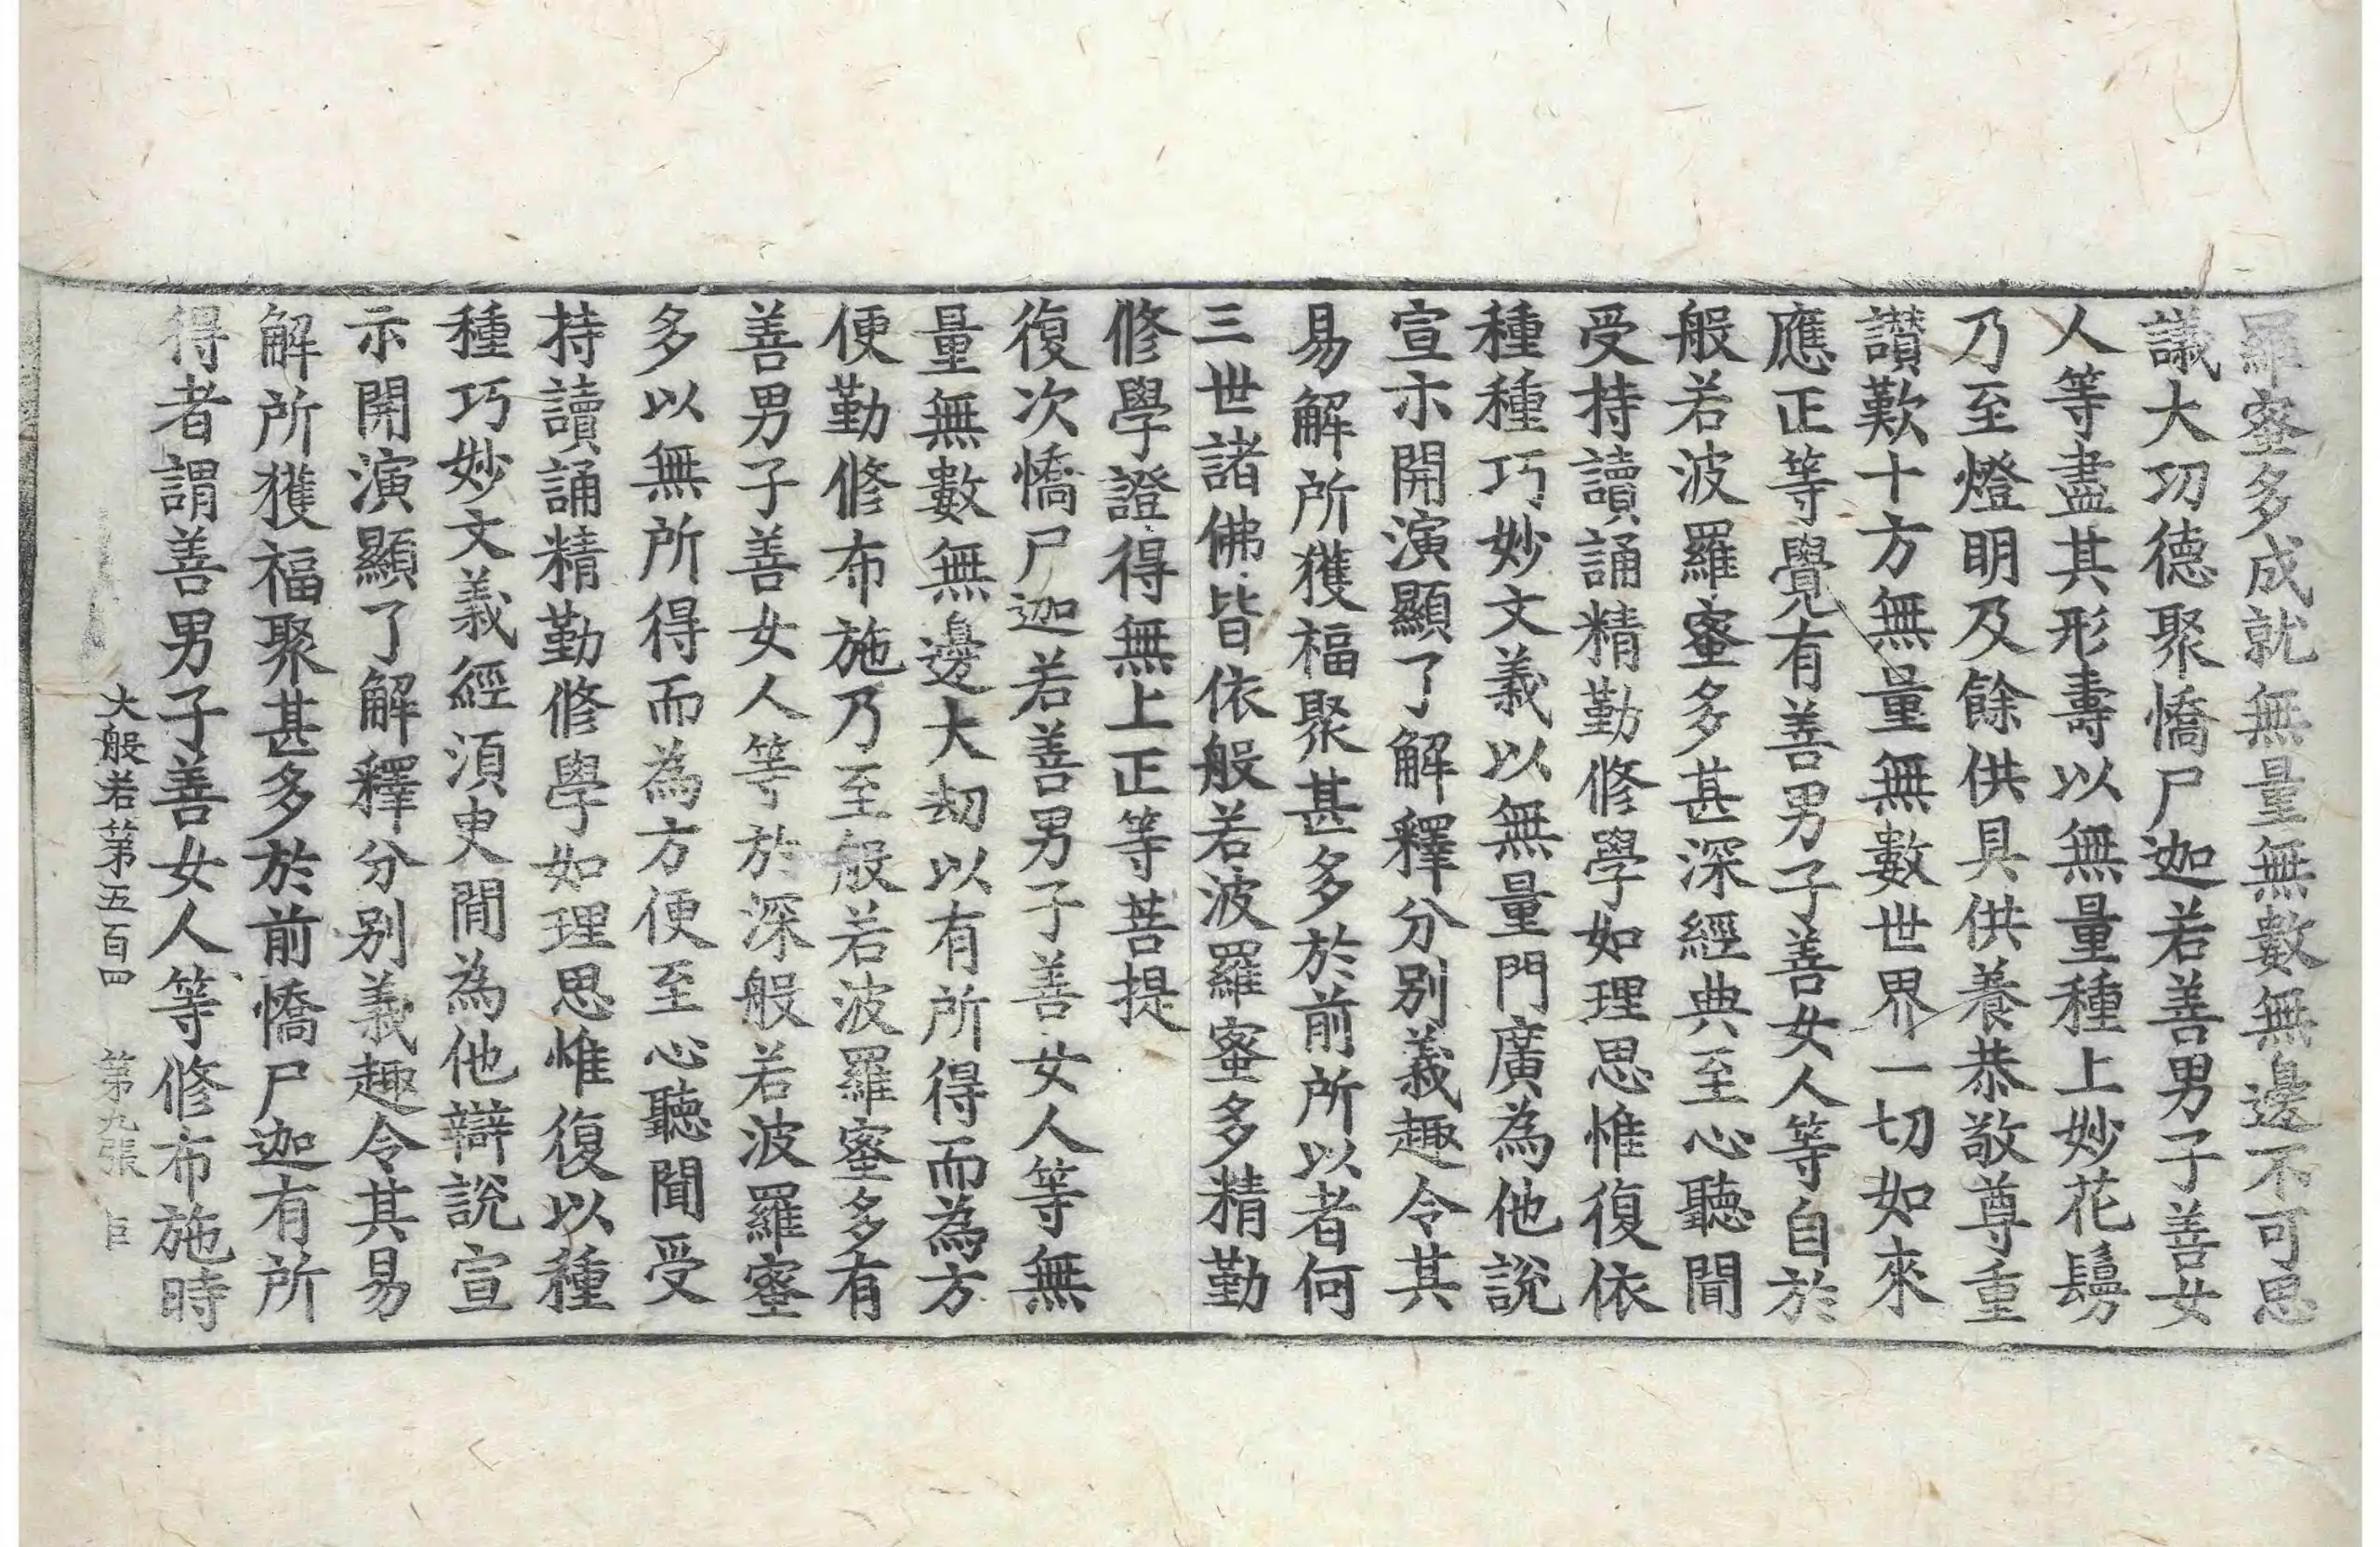 羅蜜多成就無量無數無邊不可思
議大功德聚憍尸迦若善男子善女
人等盡其形壽以無量種上妙花鬘
乃至燈明及餘供具供養恭敬尊重
讃歎十方無量無數世界一切如來
應正等覺有善男子善女人等自於
般若波羅蜜多甚深經典至心聽聞
受持讀誦精勤修學如理思惟復依
種種巧妙文義以無量門廣為他說
宣示開演顯了解釋分別義趣令其
易解所獲福聚甚多於前所以者何
三世諸佛皆依般若波羅蜜多精勤
修學證得無上正等菩提
復次憍尸迦若善男子善女人等無
量無數無邊大劫以有所得而為方
便勤修布施乃至般若波羅蜜多有
善男子善女人等於深般若波羅蜜
多以無所得而為方便至心聽聞受
持讀誦精勤修學如理思惟復以種
種巧妙文義經須臾閒為他辯說宣
示開演顯了解釋分別義趣令其易
解所獲福聚甚多於前憍尸迦有所
得者謂善男子善女人等修布施時
大般若第五百四 第九張 巨